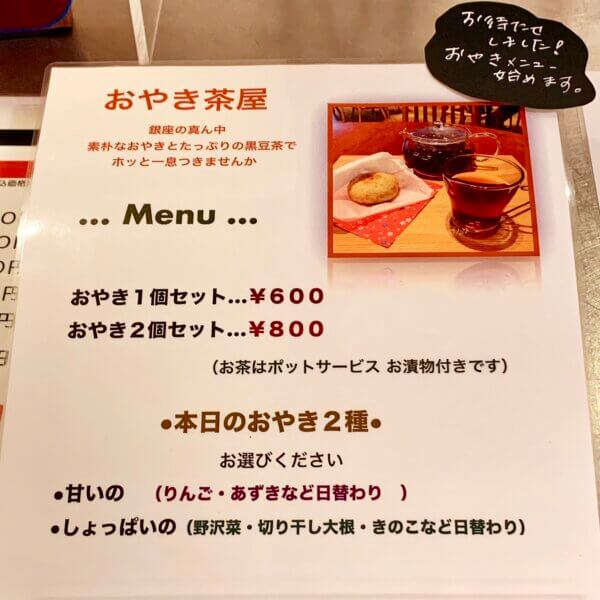 お待たせ
しました!
おやきメニュー
始めます。
おやき茶屋
銀座の真ん中
素朴なおやきとたっぷりの黒豆茶で
ホッと一息つきませんか
... Menu ...
おやき1個セット...¥600
おやき2個セット...¥800
(お茶はポットサービス お漬物付きです)
●本日のおやき2種●
お選びください
●甘いの (りんご・あずきなど日替わり )
●しょっぱいの(野沢菜・切り干し大根・きのこなど日替わり)
込価格
円
円
円